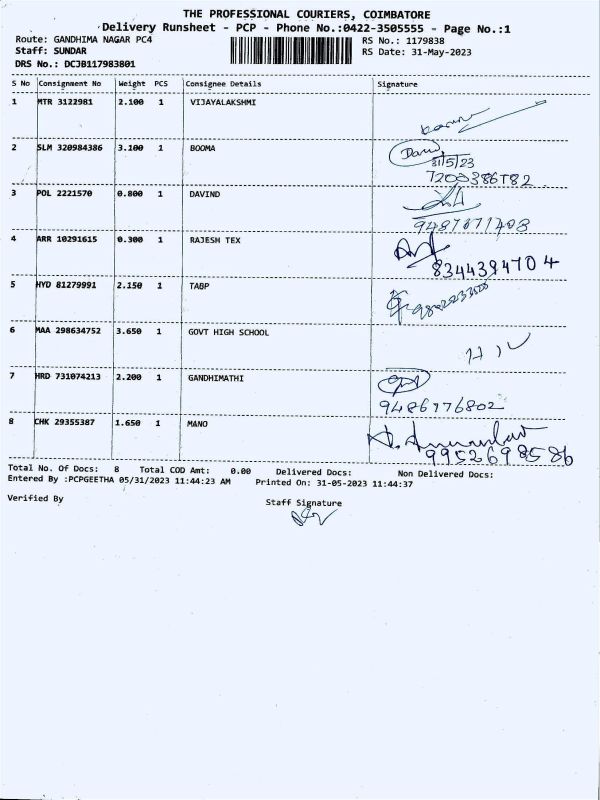 THE PROFESSIONAL COURIERS, COIMBATORE
Delivery Runsheet - PCP - Phone No.:0422-3505555 - Page No.:1
Route: GANDHIMA NAGAR PC4
RS No.: 1179838
Staff: SUNDAR
RS Date: 31-May-2023
DRS No.: DCJB117983801
S No Consignment No Weight PCS Consignee Details Signature
1 MTR 3122981 2.100 1 VIJAYALAKSHMI
2 SLM 320984386 3.100 1 BOOMA
31/5/23
7203386782
3 POL 2221570 0.800 1 DAVIND
9487671408
4 ARR 10291615 0.300 1 RAJESH TEX
8344394704
5 HYD 81279991 2.150 1 TABP
6 MAA 298634752 3.650 1 GOVT HIGH SCHOOL
7 HRD 731074213 2.200 1 GANDHIMATHI
9486776802
8 CHK 29355387 1.650 1 MANO
9952698586
Total No. Of Docs: 8 Total COD Amt: 0.00 Delivered Docs: Non Delivered Docs:
Entered By :PCPGEETHA 05/31/2023 11:44:23 AM Printed On: 31-05-2023 11:44:37
Verified By Staff Signature